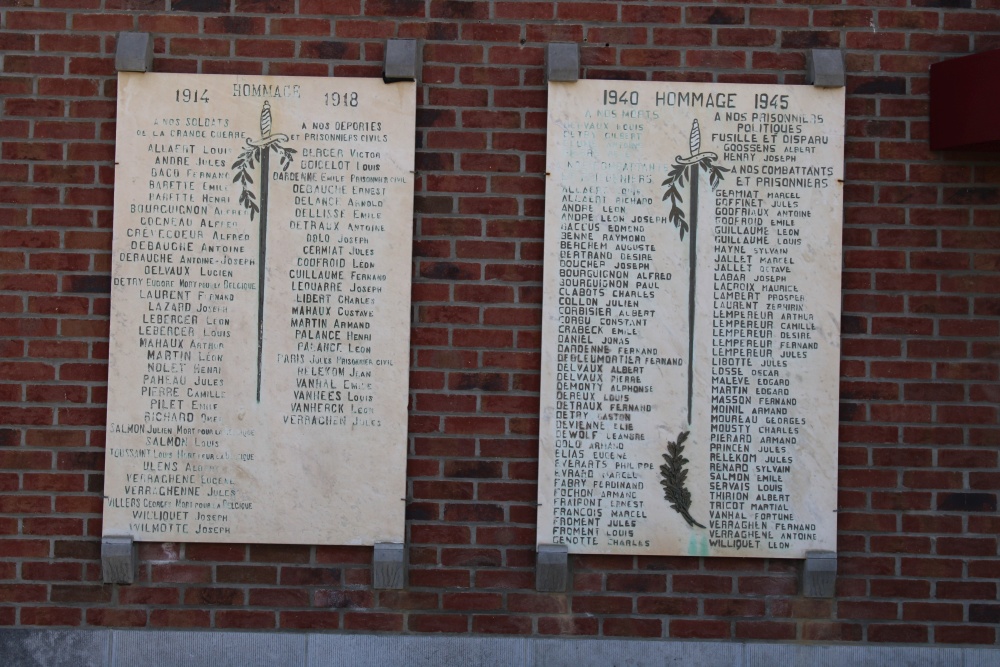 1914 HOMMAGE 1918
A NOS SOLDATS
DE LA GRANDE GUERRE
ALLAERT LOUIS
ANDRE JULES
BACQ FERNAND
BARETTE EMILE
BARETTE HENRI
BOURGUIGNON ALFRED
COGNEAU ALFRED
CREVECOEUR ALFRED
DEBAUCHE ANTOINE
DEBAUCHE ANTOINE-JOSEPH
DELVAUX LUCIEN
DETRY EUDORE MORT POUR LA BELGIQUE
LAURENT FERNAND
LAZARD JOSEPH
LEBERGER LEON
LEBERGER LOUIS
MAHAUX ARTHUR
MARTIN LÉON
NOLET HENRI
PAHEAU JULES
PIERRE CAMILLE
PILET EMILE
RICHARD
SALMON JULIEN MORT POUR LA BELGIQUE
SALMON LOUIS
TOUSSAINT LOUIS MORT POUR LA BELGIQUE
ULENS
VERRAGHENE LUCIEN
VERRAGHENNE JULES
VILLERS GEORGES MORT POUR LA BELGIQUE
WILLIQUET JOSEPH
WILMOTTE JOSEPH
A NOS DEPORTES
ET PRISONNIERS CIVILS
BERGER VICTOR
BOICELOT LOUIS
DARDENNE EMILE PRISONNIER CIVIL
DEBAUCHE ERNEST
DELANGE ARNOLD
DELLISSE EMILE
DETRAUX ANTOINE
DOLO JOSEPH
GERMIAT JULES
GODFROID LEON
GUILLAUME FERNAND
LEQUARRE JOSEPH
LIBERT CHARLES
MAHAUX GUSTAVE
MARTIN ARMAND
PALANGE HENRI
PALANGE LEON
PARIS JULES PRISONNIER CIVIL
RELEKOM JEAN
VANHAL EMILE
VANHEES LOUIS
VANHERCK LEON
VERRAGHEN JULES
1940 HOMMAGE 1945
A NOS MORTS
DELVAUX LOUIS
DETRY GILBERT
ALLAERT
ALLAERT RICHARD
ANDRE LEON
ANDRE LEON JOSEPH
BACCUS EDMOND
BENNE RAYMOND
BERCHEM AUGUSTE
BERTRAND DESIRE
BOUCHER JOSEPH
BOURGUIGNON ALFRED
BOURGUIGNON PAUL
CLABOTS CHARLES
COLLON JULIEN
CORBISIER ALBERT
CORBU CONSTANT
CRABECK EMILE
DANIEL JONAS
DARDENNE FERNAND
DEBLEUMORTIER FERNAND
DELVAUX ALBERT
DELVAUX PIERRE
DEMONTY ALPHONSE
DEREUX LOUIS
DETRAUX FERNAND
DETRY GASTON
DEVIENNE ELIE
DEWOLF LEANDRE
DOLO ARMAND
ELIAS EUGENE
EVERARTS PHILIPPE
EVRARD MARCEL
FABRY FERDINAND
FOCHON ARMAND
FRAIPONT ERNEST
FRANÇOIS MARCEL
FROMENT JULES
FROMENT LOUIS
GENOTTE CHARLES
A NOS PRISONNIERS
POLITIQUES
FUSILLE ET DISPARU
GOOSSENS ALBERT
HENRY JOSEPH
A NOS COMBATTANTS
ET PRISONNIERS
GERMIAT MARCEL
GOFFINET JULES
GODFRIAUX ANTOINE
GODFROID EMILE
GUILLAUME LEON
GUILLAUME LOUIS
HAYNE SYLVAIN
JALLET MARCEL
JALLET OCTAVE
LABAR JOSEPH
LACROIX MAURICE
LAMBERT PROSPER
LAURENT ZEPHIRIN
LEMPEREUR ARTHUR
LEMPEREUR CAMILLE
LEMPEREUR DESIRE
LEMPEREUR FERNAND
LEMPEREUR JULES
LIBOTTE JULES
LOSSE OSCAR
MALEVE EDGARD
MARTIN EDGARD
MASSON FERNAND
MOINIL ARMAND
MOUREAU GEORGES
MOUSTY CHARLES
PIERARD ARMAND
PRINCEN JULES
RELLEKOM JULES
RENARD SYLVAIN
SALMON EMILE
SERVAIS LOUIS
THIRION ALBERT
TRICOT MARTIAL
VANHAL FORTUNE
VERRAGHEN FERNAND
WILLIQUET LEON